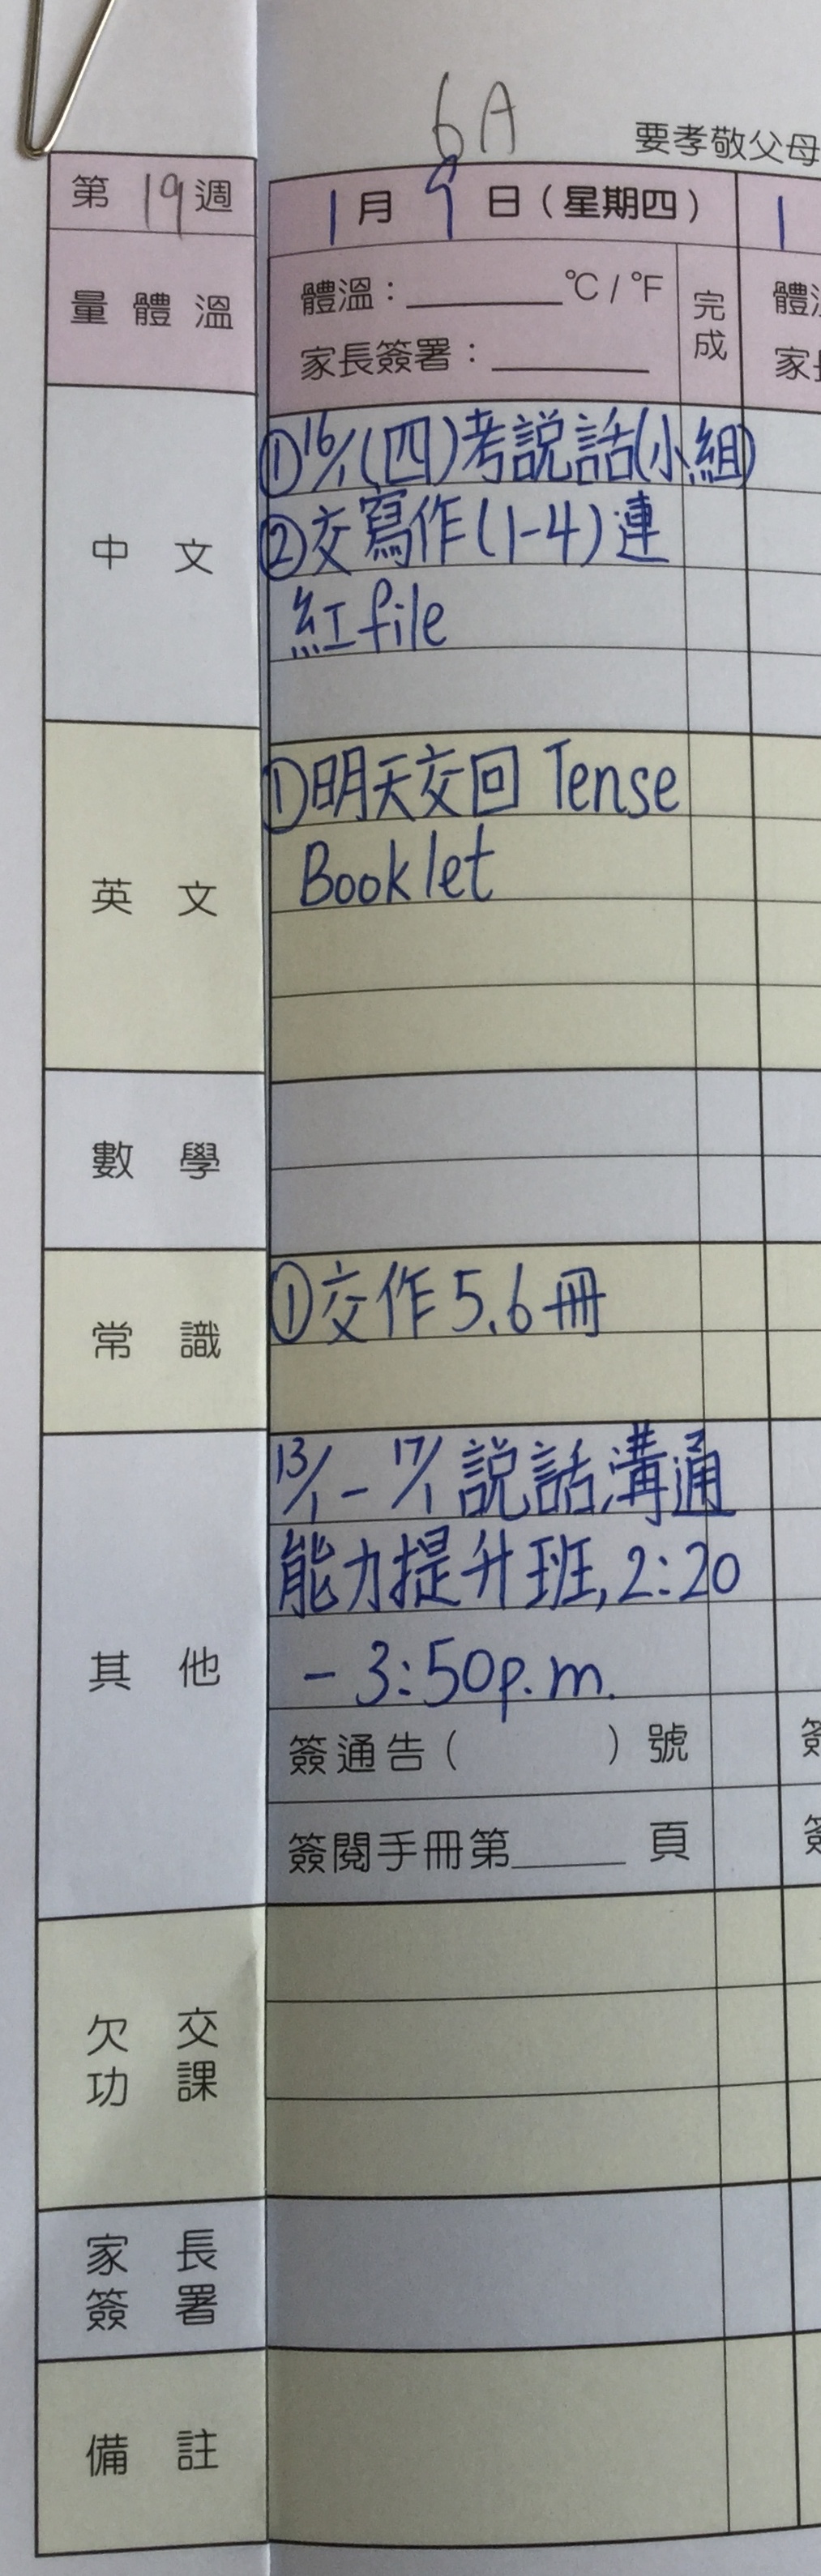 6A
要孝敬父母
第19週
1月9日(星期四)
1
量體溫
體溫:______°C/°F
完成
家長簽署:______
家
中文
①16/1(四)考說話(小組)
②交寫作(1-4)連
紅file
英文
①明天交回 Tense
Booklet
數學
常識
①交作5.6冊
其他
13/1-17/1說話溝通
能力提升班,2:20
-3:50p.m.
簽通告( )號
簽
簽閱手冊第____頁
簽
欠交
功課
家長
簽署
備註